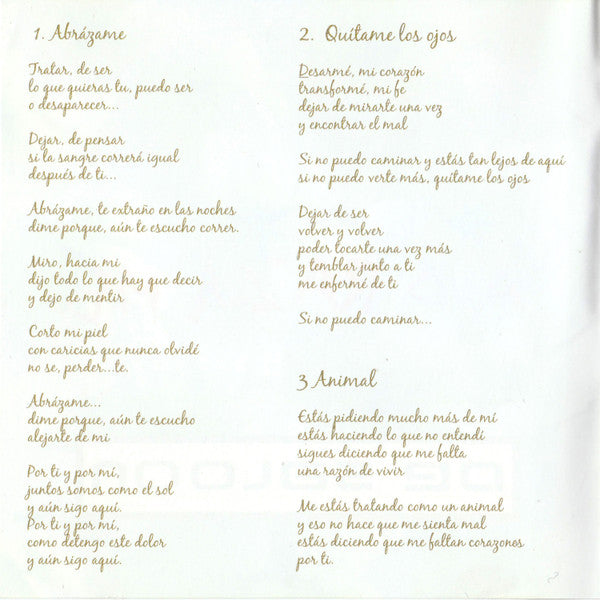 1. Abrázame
Tratar, de ser
lo que quieras tu, puedo ser
o desaparecer...
Dejar, de pensar
si la sangre correrá igual
después de ti...
Abrázame, te extraño en las noches
dime porque, aún te escucho correr.
Miro, hacia mi
dijo todo lo que hay que decir
y dejo de mentir
Corto mi piel
con caricias que nunca olvidé
no se, perder...te.
Abrázame...
dime porque, aún te escucho
alejarte de mi
Por ti y por mí,
juntos somos como el sol
y aún sigo aquí.
Por ti y por mí,
como detengo este dolor
y aún sigo aquí.
2. Quítame los ojos
Desarmé, mi corazón
transformé, mi fe
dejar de mirarte una vez
y encontrar el mal
Si no puedo caminar y estás tan lejos de aquí
si no puedo verte más, quítame los ojos
Dejar de ser
volver y volver
poder tocarte una vez más
y temblar junto a ti
me enfermé de ti
Si no puedo caminar...
3 Animal
Estás pidiendo mucho más de mí
estás haciendo lo que no entendí
sigues diciendo que me falta
una razón de vivir
Me estás tratando como un animal
y eso no hace que me sienta mal
estás diciendo que me faltan corazones
por ti.